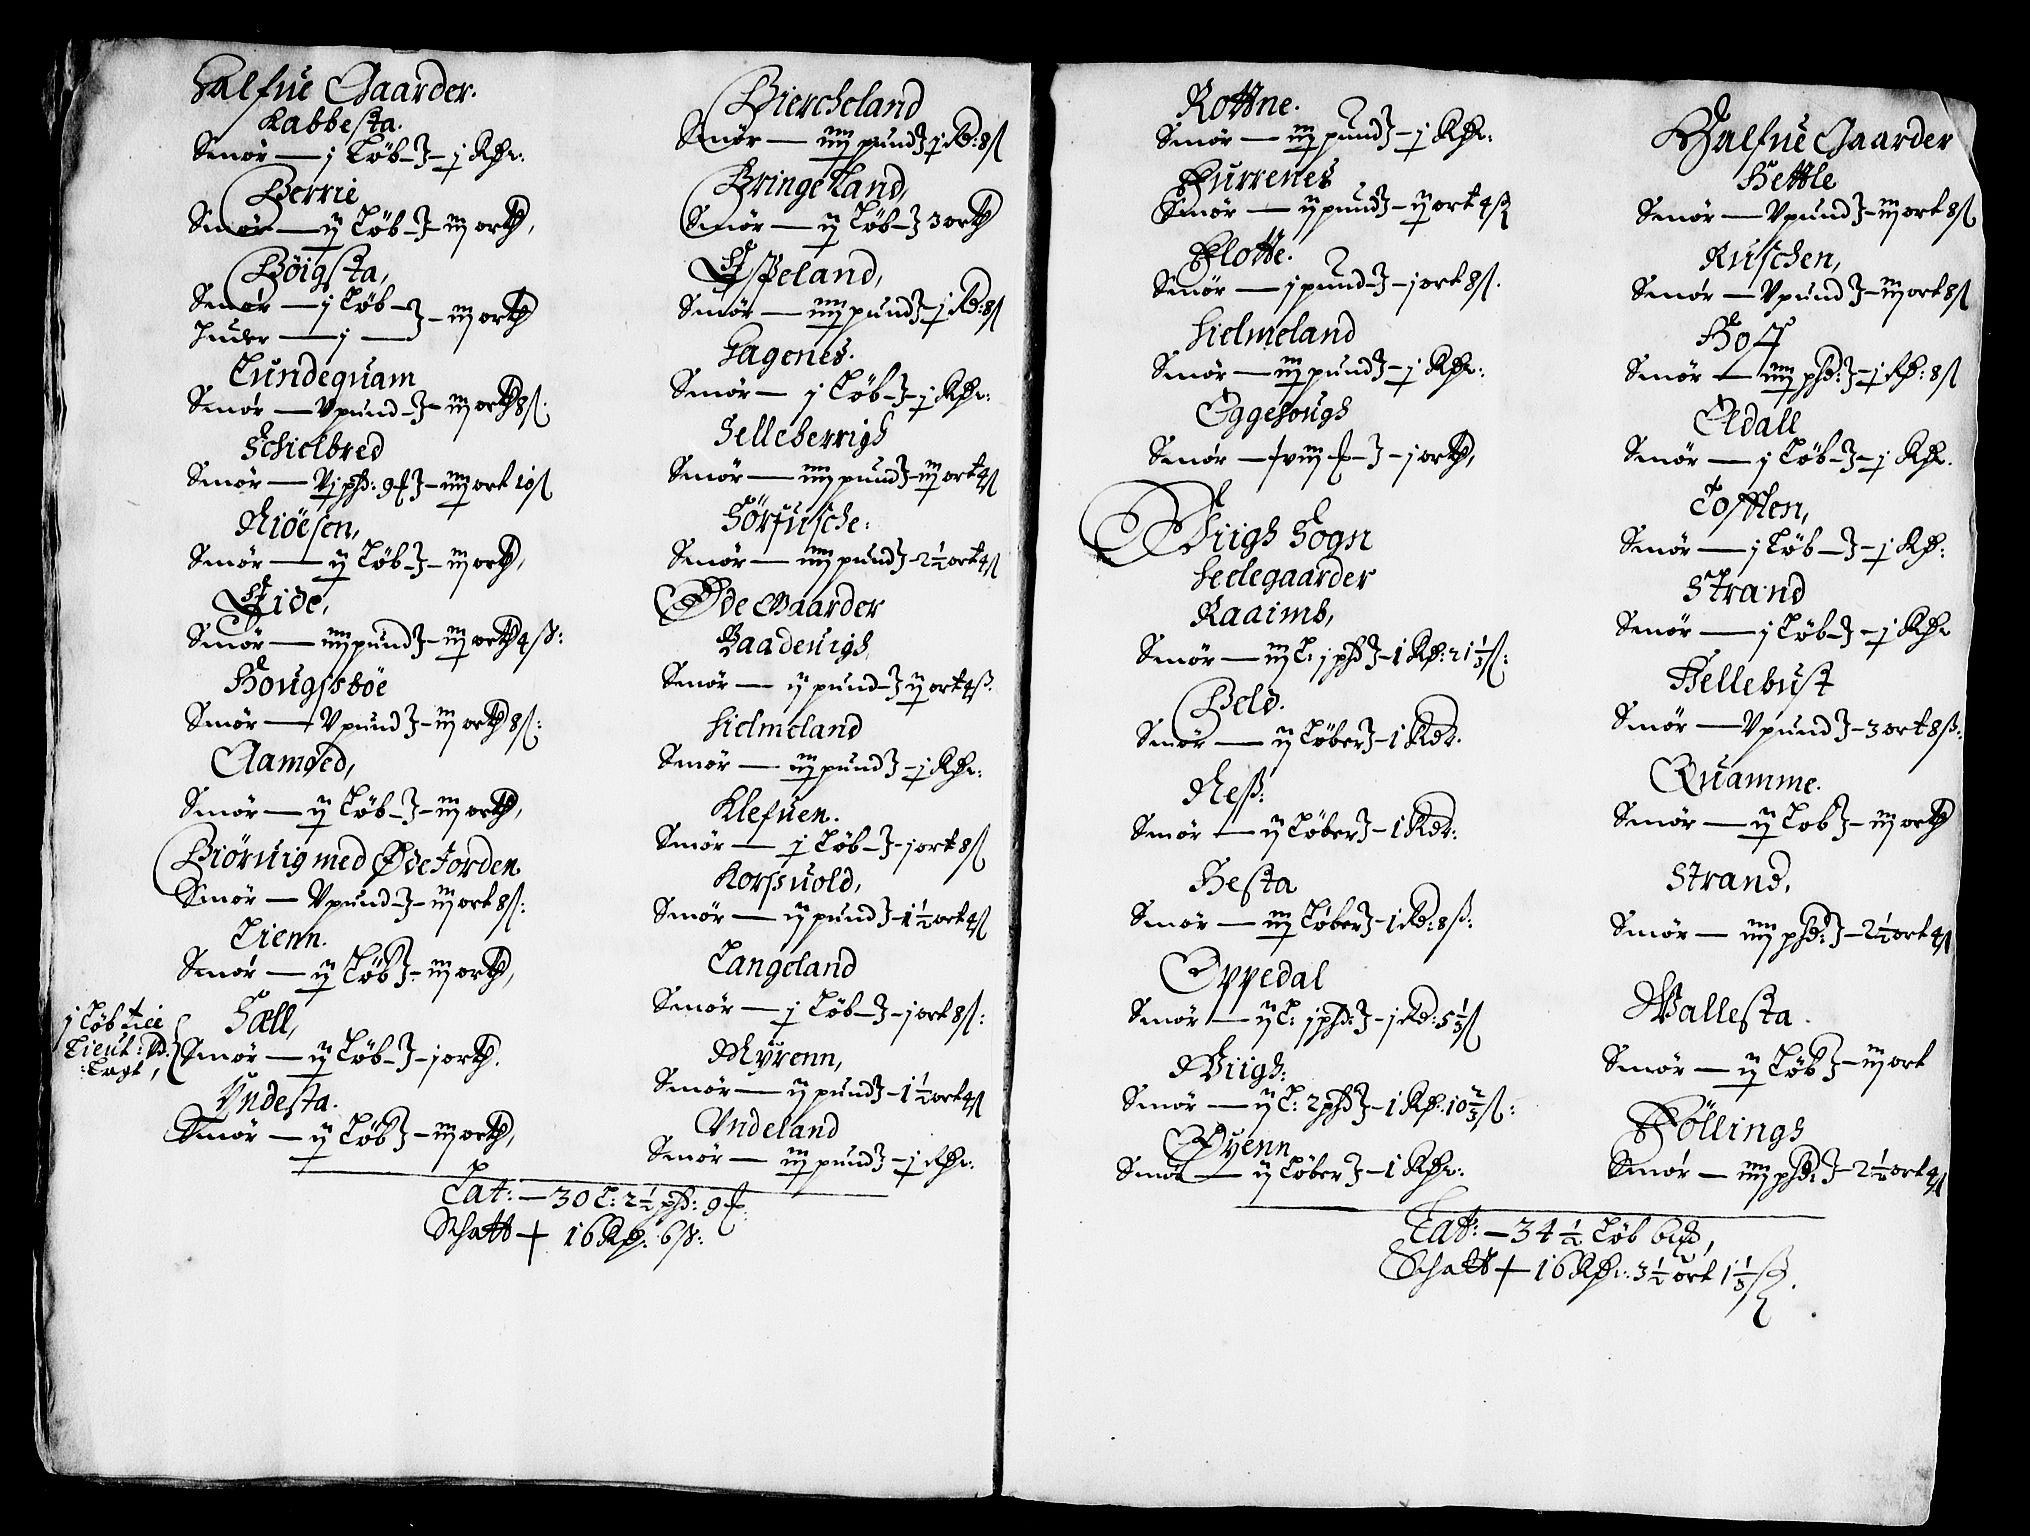 Halfue Gaarder.
Kabbesta.
Smør — j Løb — j Rdr:
Berrie
Smør — ij Løb — iij orth,
Böigsta,
Smør — j Løb
Huder — j — iij orth
Lundequam
Smør — V pund — iij orth 8 ß.
Schielbred
Smør — Vj pd: 9 — iiij ort 10 ß
Miöesen,
Smør — ij Løb — iij orth,
Eide,
Smør — iiij pund — iij orth 4 ß:
Hougssböe
Smør — V pund — iij orth 8 ß:
Aamoed,
Smør — ij Løb — iij orth,
Biöruig med Øde Jorden
Smør — V pund — iij ort 8 ß:
Lienn.
Smør — ij Løb — iij orth,
j Løb til
Lieut:
Lagt,
Sæll,
Smør — ij Løb — j orth.
Vndesta.
Smør — ij Løb — iij orth,
Biercheland
Smør — iiij pund j Rd: 8 ß
Bringeland,
Smør — ij Løb — 3 orth
Espeland,
Smør — iiij pund — j Rd: 8 ß
Hagenes.
Smør — j Løb — j Rdr:
Selleberrigh
Smør — iiij pund — iij ort 4 ß
Sörfusche:
Smør — iiij pund — 2 1/2 ort 4 ß
Øde Gaarder
Baadeuigh
Smør — ij pund — ij ort 4 ß.
Hielmeland
Smør — iij pund — j Rdr:
Klefuen.
Smør — j Løb — j ort 8 ß
Korssuold,
Smør — ij pund — 1 1/2 ort 4 ß
Langeland
Smør — j Løb — j ort 8 ß:
Myrenn,
Smør — ij pund — 1 1/2 ort 4 ß
Vndeland
Smør — iij pund — j Rdr:
Lat: — 30 L: 2 1/2 pd: 9
Schatt + 16 Rdr: 6 ß:
Rottne.
Smør — iij pund — j Rdr:
Furrenes
Smør — ij pund — ij ort 4 ß
Flotte.
Smør — j pund — j ort 8 ß.
Hielmeland
Smør — iij pund — j Rdr:
Eggehougb
Smør — viij — j orth,
Wiigh Sogn
Heelegaarder
Raaimb,
Smør — iij L: j pd — 1 Rd: 21 1/3 ß:
Beld.
Smør — ij Løber — 1 Rdr.
Neß:
Smør — ij Løber — 1 Rdr:
Hesta
Smør — iij Løber — 1 Rd: 8 ß:
Oppedal
Smør — ij L: j pd: — j Rd: 5 1/3 ß
Wiigh:
Smør — ij L: 2 pd — 1 Rd: 10 2/3 ß:
Øyenn
Smør — ij Løber — 1 Rdr:
Halfue Gaarder
Hettle
Smør — V pund — iij ort 8 ß
Ruschen,
Smør — V pund — iij ort 8 ß
Hoff
Smør — iiij pd: — j Rd: 8 ß
Aldall
Smør — j Løb — j Rdr.
Tofften,
Smør — j Løb — j Rd:
Strand
Smør — j Løb — j Rdr
Hellebust
Smør — V pund — 3 ort 8 ß:
Quamme.
Smør — ij Løb — iij orth
Strand,
Smør — iiij pd: — 2 1/2 ort 4 ß
Wallesta.
Smør — ij Løb — iij ort
Föllingh
Smør — iiij pd — 2 1/2 ort 4 ß
Lat: — 34 1/2 Løb
Schatt + 16 Rdr: 3 1/2 ort 1 1/3 ß.